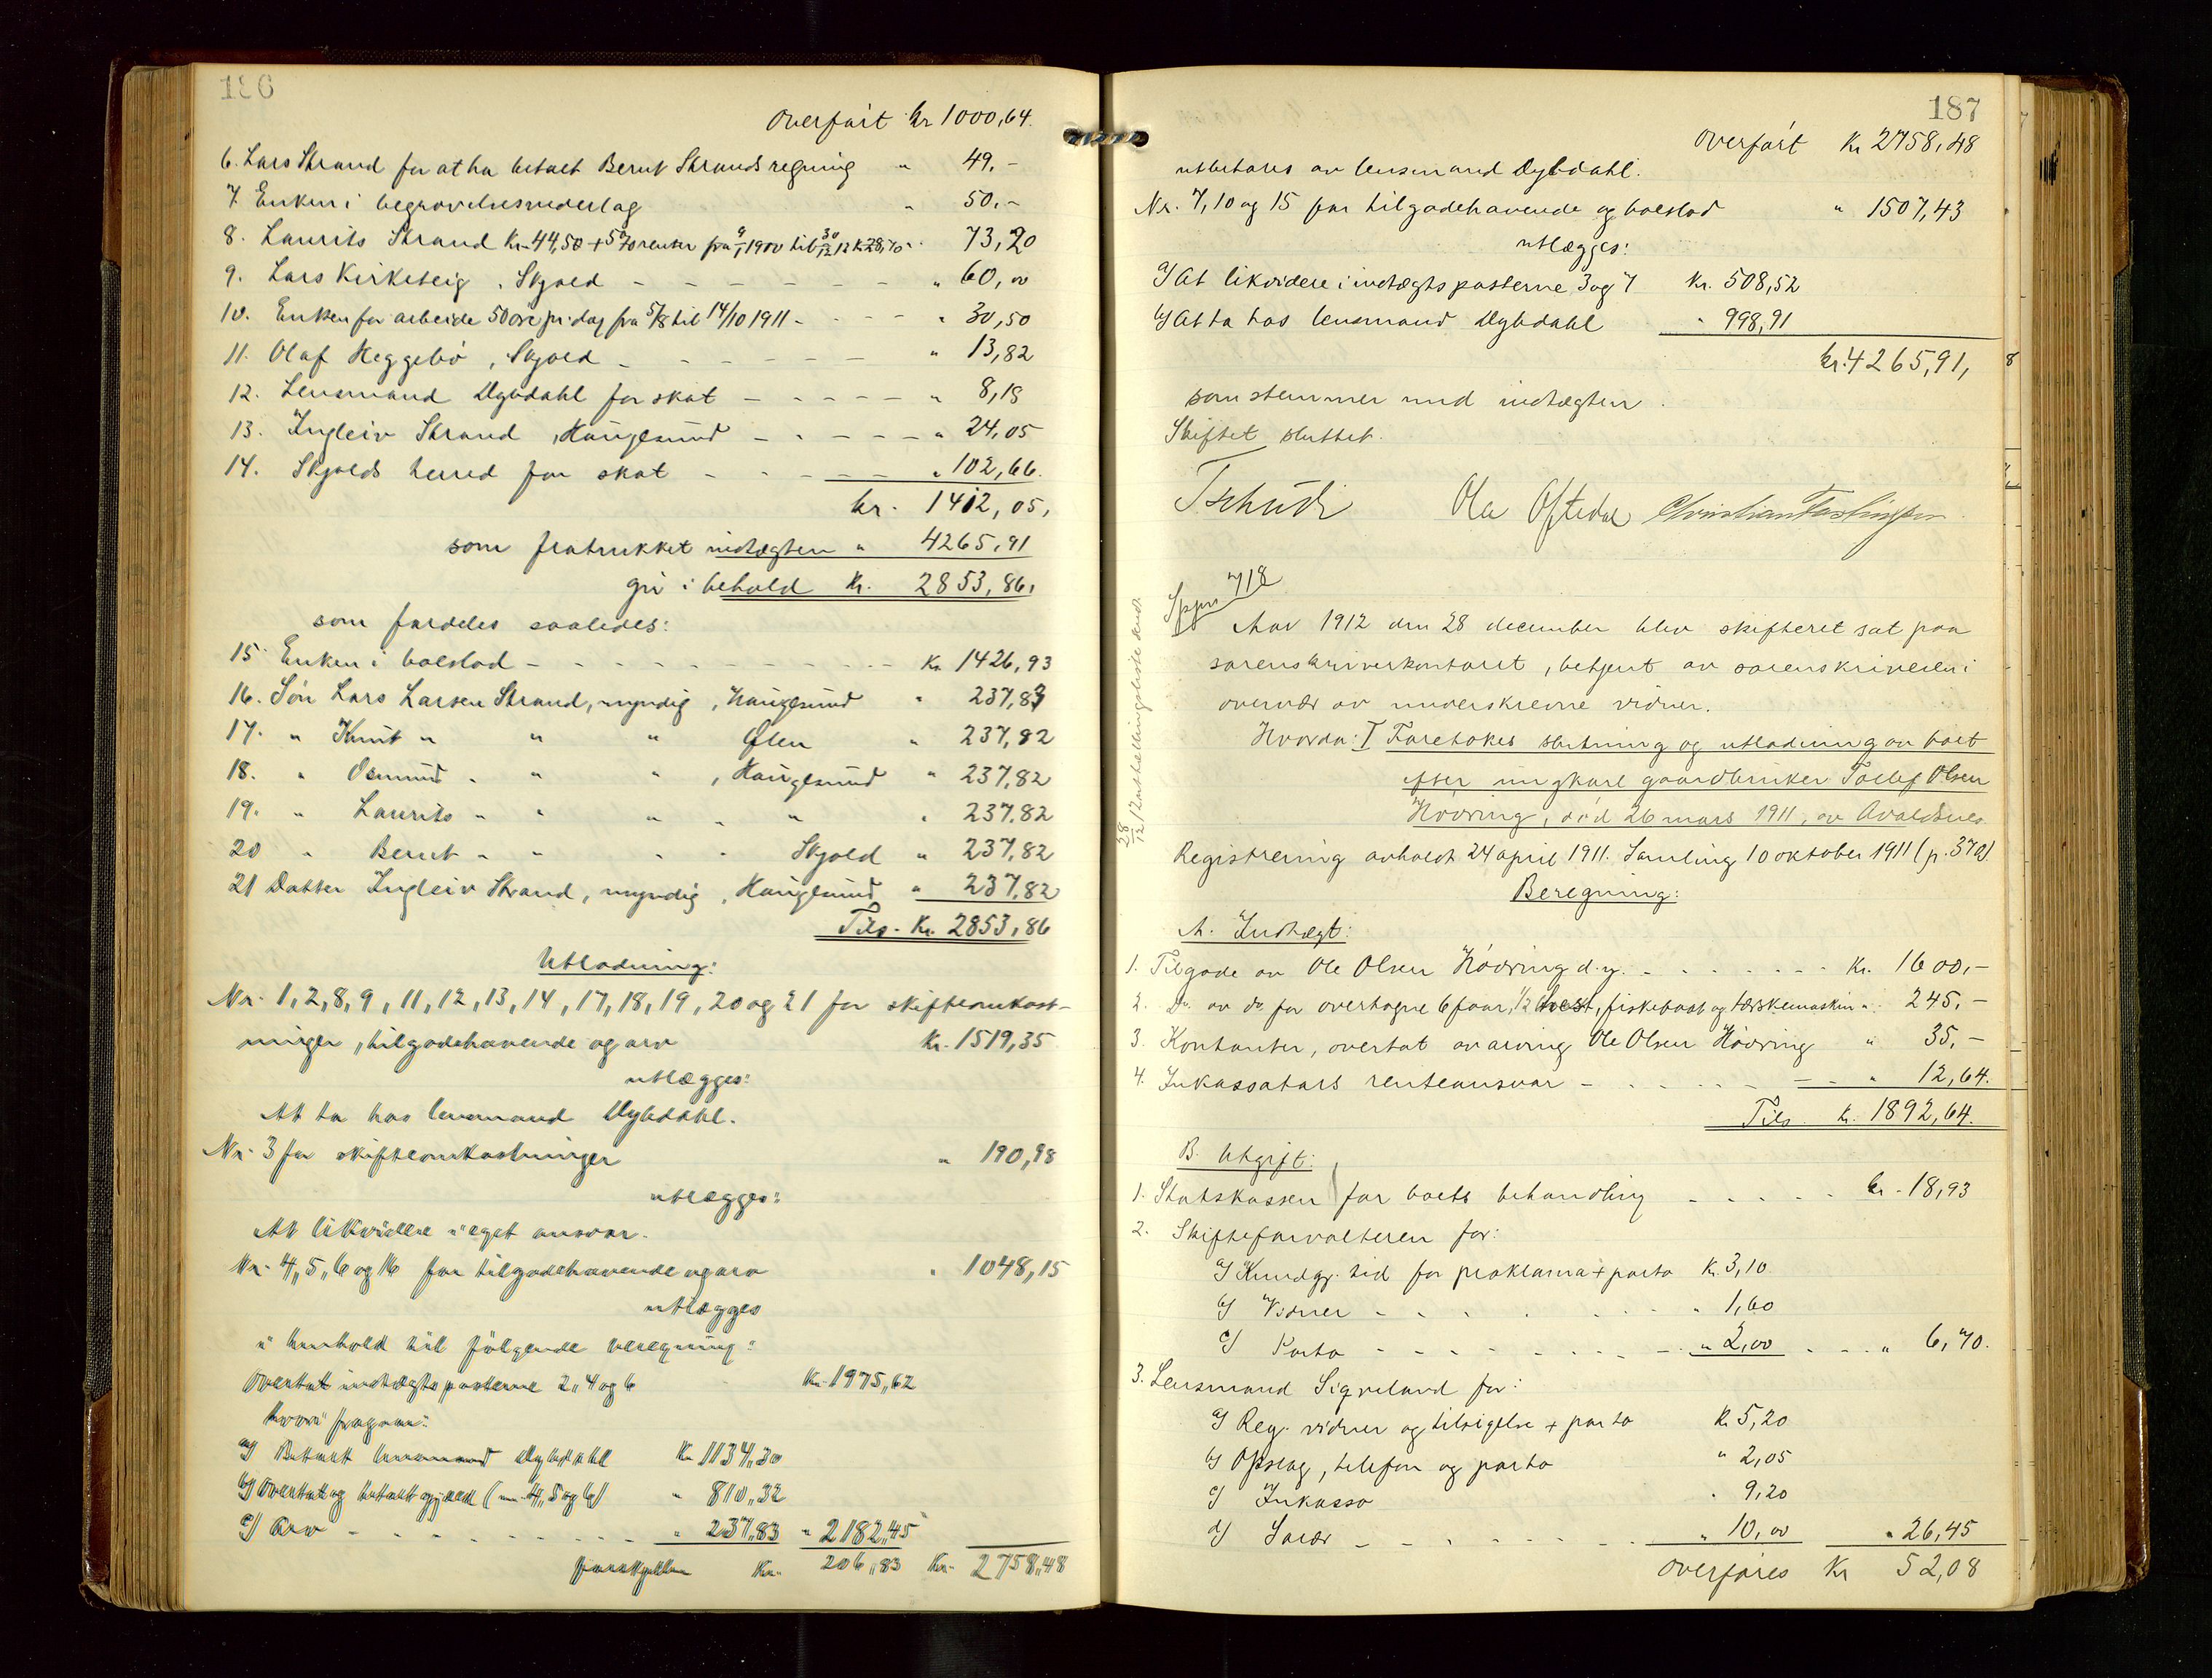 186
Overført kr 1000,64.
6. Lars Strand for at ha betalt Bernt Strands regning " 49.-
7. Enken i begravelsesvederlag " 50.-
8. Laurits Strand kr. 44,50 + 5% renter fra 9/1 1900 til 30/12 12 k 28,70 " 73,20
9. Lars Kirketeig, Skjold - - - - - - " 60,00
10. Enken for arbeide 50 øre pr. dag fra 5/8 til 14/10 1911 - - - - " 30,50
11. Olaf Heggebø, Skjold - - - - - - " 13,82
12. Lensmand Dybdahl for skat - - - - - " 8,18
13. Ingleiv Strand, Haugesund - - - - - " 24,05
14. Skjolds herred for skat - - - - - " 102,66.
kr. 1412,05,
som fratrukket indtægten " 4265,91
gir i behold Kr. 2853,86,
som fordeles saaledes:
15. Enken i boeslod - - - - - - - - - Kr 1426,93
16. Søn Lars Larsen Strand, myndig, Haugesund " 237,83
17. " Knut " " " Ølen " 237,82
18. " Osmund " " " , Haugesund " 237,82
19. " Laurits " " " " " " 237,82
20 " Bernt " " " " Skjold " 237,82
21 Datter Ingleiv Strand, myndig, Haugesund " 237,82
Tils. Kr. 2853,86
Utlodning:
Nr. 1,2,8,9,11,12,13,14,17,18,19,20 og 21 for skifteomkost-
ninger, tilgodehavende og arv Kr. 1519,35
utlægges:
At ta hos lensmand Dybdahl.
Nr. 3 for skifteomkostninger " 190,98
utlægges:
At likvidere i eget ansvar.
Nr. 4,5,6 og 16 for tilgodehavende og arv " 1048,15
utlægges
i henhold til følgende beregning:
Overtat indtægtsposterne 2,4 og 6 Kr. 1975,62
hvori fragaar:
a) Betalt lensmand Dybdahl Kr. 1134,30
b) Overtat og betalt gjæld (nr. 4,5 og 6) " 810,32
c) Arv - - - - - - - " 237,83 " 2182,45
forskjellen Kr. 206,83 Kr. 2758,48
187
Overført Kr 2758,48
utbetales av lensmand Dybdahl.
Nr. 7, 10 og 15 for tilgodehavende og boeslod " 1507,43
utlægges:
a) At likvidere i indtægtsposterne 3 og 7 Kr. 508,52
b) At ta hos lensmand Dybdahl " 998,91
kr. 4265,91,
som stemmer med indtægten.
Skiftet sluttet.
Tschudi Ola Oftedal Christian
Sppr 718
28/12 12 utstellingsliste sendt.
Aar 1912 den 28 december blev skifteret sat paa
sorenskriverkontoret, betjent av sorenskriveren i
overvær av underskrevne vidner.
Hvorda: I Foretokes slutning og utlodning av boet
efter ungkarl gaardbruker Tollef Olsen
Høvring, død 26 mars 1911, av Avaldsnes
Registrering avholdt 24 april 1911. Samling 10 oktober 1911 (p. 37a)
Beregning:
A. Indtægt:
1. Tilgode av Ole Olsen Høvring d.y. - - - - - - Kr. 1600,-
2. Do av do for overtagne 6 faar, 1/2 hest, fiskebaat og tærskemaskin " 245,-
3. Kontanter, overtat av arving Ole Olsen Høvring " 35,-
4. Inkassators renteansvar - - - - - - - - " 12,64.
Tils. k. 1892,64.
B. Utgift:
1. Statskassen for boets behandling - - - - - kr. 18,93
2. Skifteforvalteren for:
a) Kundgj. tid for proklama + porto Kr. 3,10
b) Vidner - - - - - - " 1,60
c) Porto - - - - - - - " 2,00 - - " 6,70.
3. Lensmand Sigveland for:
a) Reg. vidner og tilsigelse + porto K. 5,20
b) Opslag, telefon og porto " 2,05
c) Inkasso " 9,20
d) Salær - - - - - - - " 10,00 " 26,45
Overføres Kr 52,08